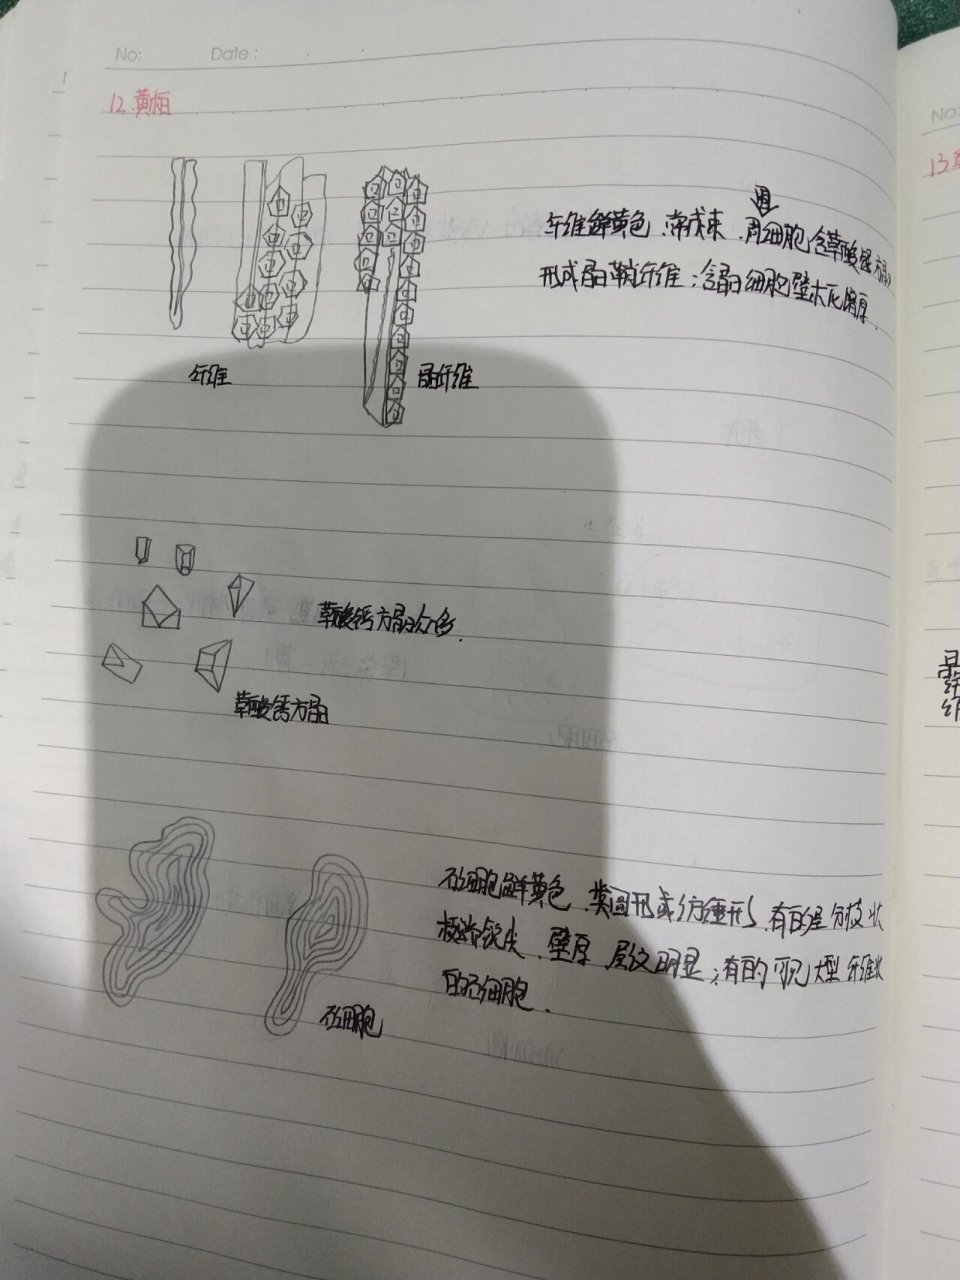 No: Date:
12.黄柏
纤维鲜黄色、常成束、周围细胞含草酸钙方晶,
形成晶鞘纤维；含晶细胞壁木化增厚.
纤维
晶纤维
草酸钙方晶众多.
草酸钙方晶
石细胞鲜黄色、类圆形或纺锤形、有的呈分枝状
枝端锐尖、壁厚、层纹明显；有的可见大型纤维状
的石细胞.
石细胞
No:
13.